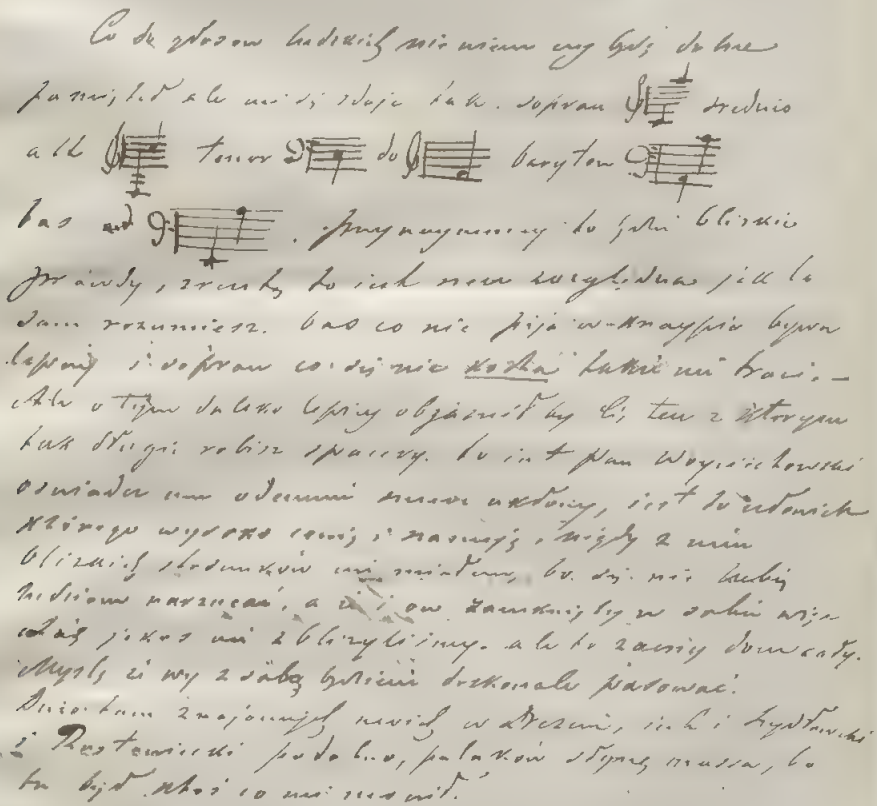 Co do głosow ludzkich nie wiem czy będę dobrze
pamiętał ale mi się zdaje tak. sopran średnio
alt tenor do baryton
bas od . przynajmniej to jest blizkie
prawdy, zresztą to jest rzecz względna jak to
sam rozumiesz. bas co nie pije w knajpie bywa
lepszy i sopran co się nie kocha także nie traci. —
Ale o tym daleko lepiej objaśnił by Cię ten z którym
tak długie robisz spacery. to jest pan Woyciechowski
oświadcz mu odemnie ukłony, jest to człowiek
którego wysoko cenię i szanuję, nigdy z nim
blizkich stosunków nie miałem, bo się nie lubię
ludziom narzucać, a że i on zamknięty w sobie więc
jakoś nie zbliżyliśmy. ale to zacny dom cały.
Myślę że wy z sobą będziecie doskonale pasować.
Dużo tam znajomych w Dreźnie, jest i
i Rastawiecki podobno, polaków słyszę massa, bo
tu był ktoś co mi mówił.